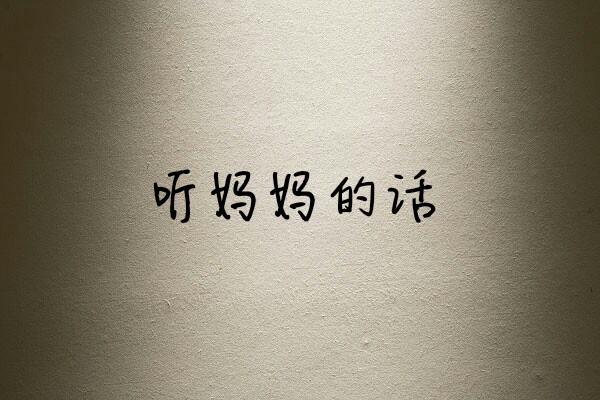 听妈妈的话